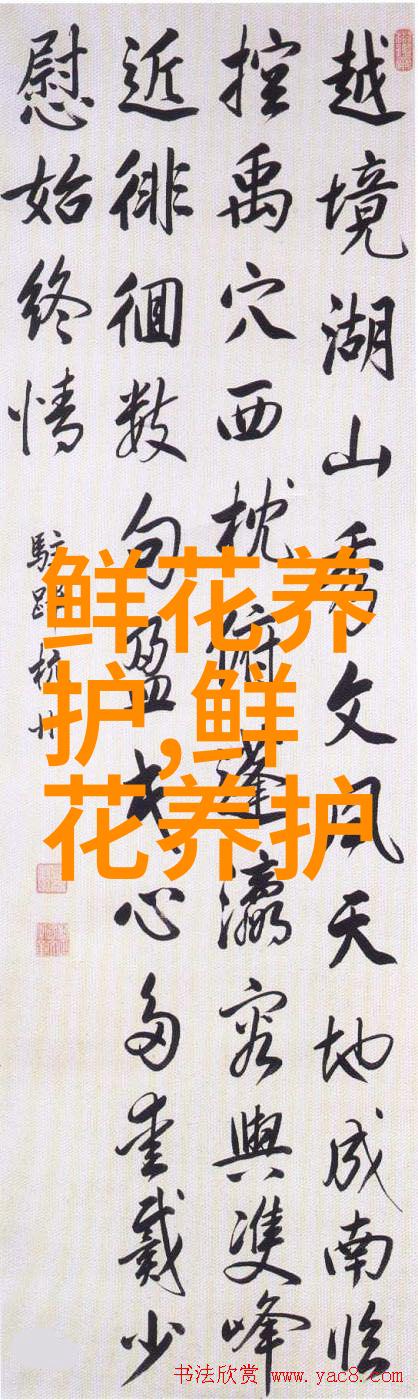 越境湖山秀文風天地成南臨
控禹穴西枕俯蓬瀛容與雙峰
近徘徊數句盈我心多愛戴少
慰始終情
駐蹕杭州
鲜花养
护,鲜
花养护
书法欣赏 www.yac8.com